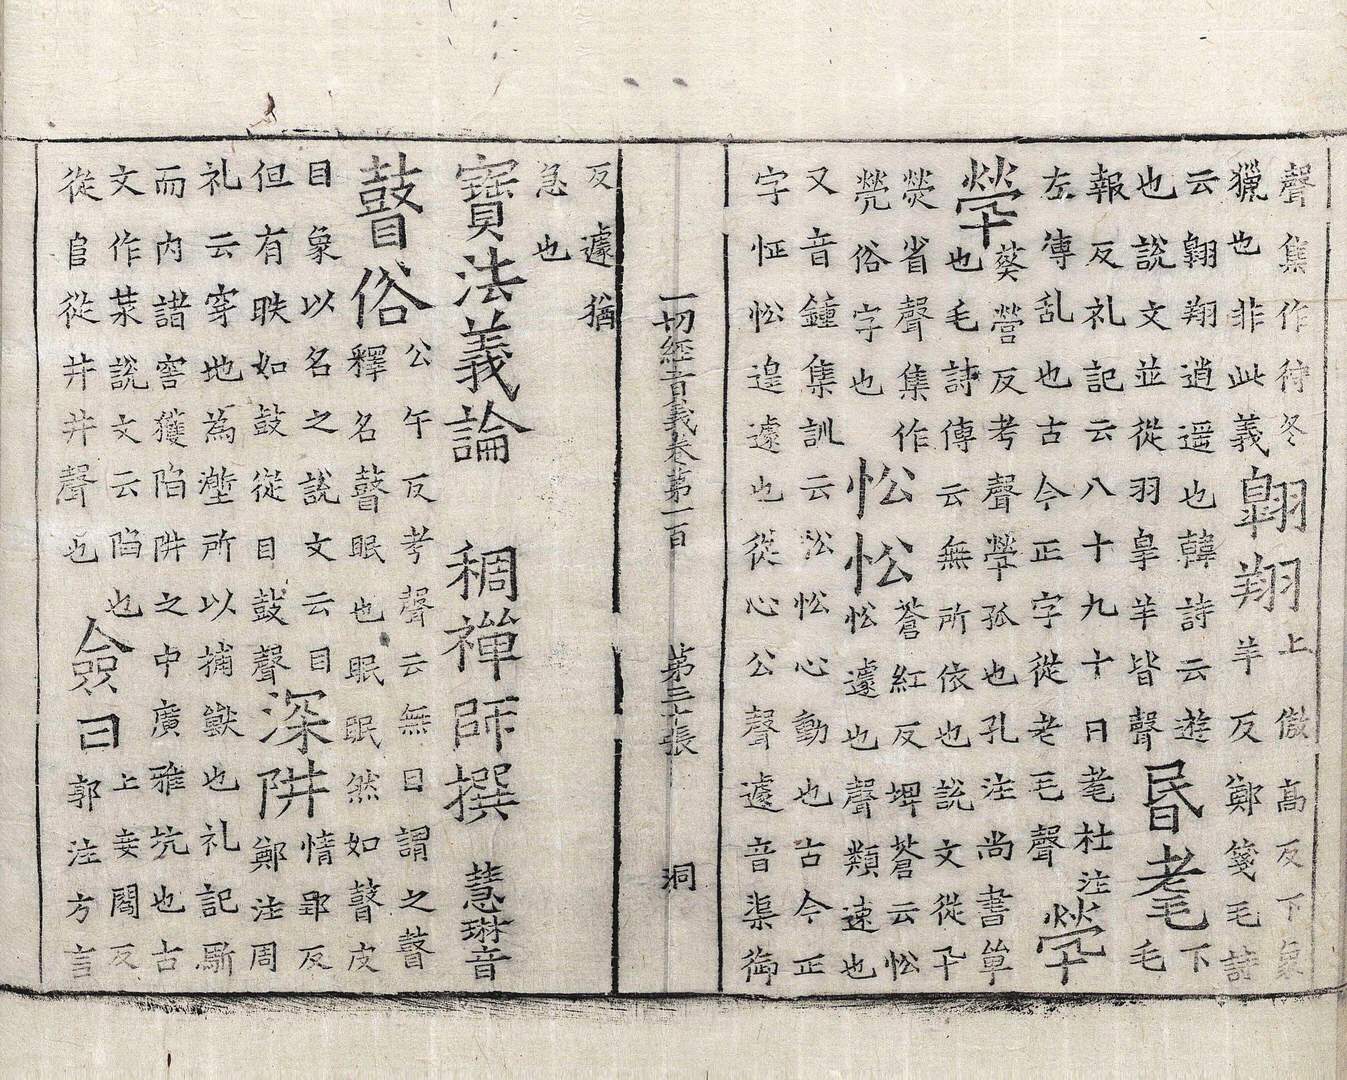 聲集作待冬
獵也非此義
翺翔
上傲高反下象
羊反鄭箋毛詩
云翺翔逍遥也韓詩云遊
也說文並從羽皐羊皆聲
昬耄
下
毛
報反礼記云八十九十日耄杜注
左傳乱也古今正字從老毛聲
煢
煢
葵營反考聲煢孤也孔注尚書單
也毛詩傳云無所依也說文從卂
熒省聲集作
煢俗字也
忪忪
蒼紅反埤蒼云忪
忪遽也聲類速也
又音鐘集訓云忪忪心動也古今正
字怔忪遑遽也從心公聲遽音渠御
一切經音義卷第一百 第三十張 洞
反遽猶
急也
寶法義論 稠禪師撰 慧琳音
瞽俗
公午反考聲云無目謂之瞽
釋名瞽眠也眠眠然如瞽皮
目象以名之說文云目
但有眹如鼓從目鼓聲
深阱
情郢反
鄭注周
礼云穿地為塹所以捕獸也礼記驅
而内諸罟獲陷阱之中廣雅坑也古
文作說文云陷也
從𨸏從井井聲也
僉曰
上妾閻反
郭注方言